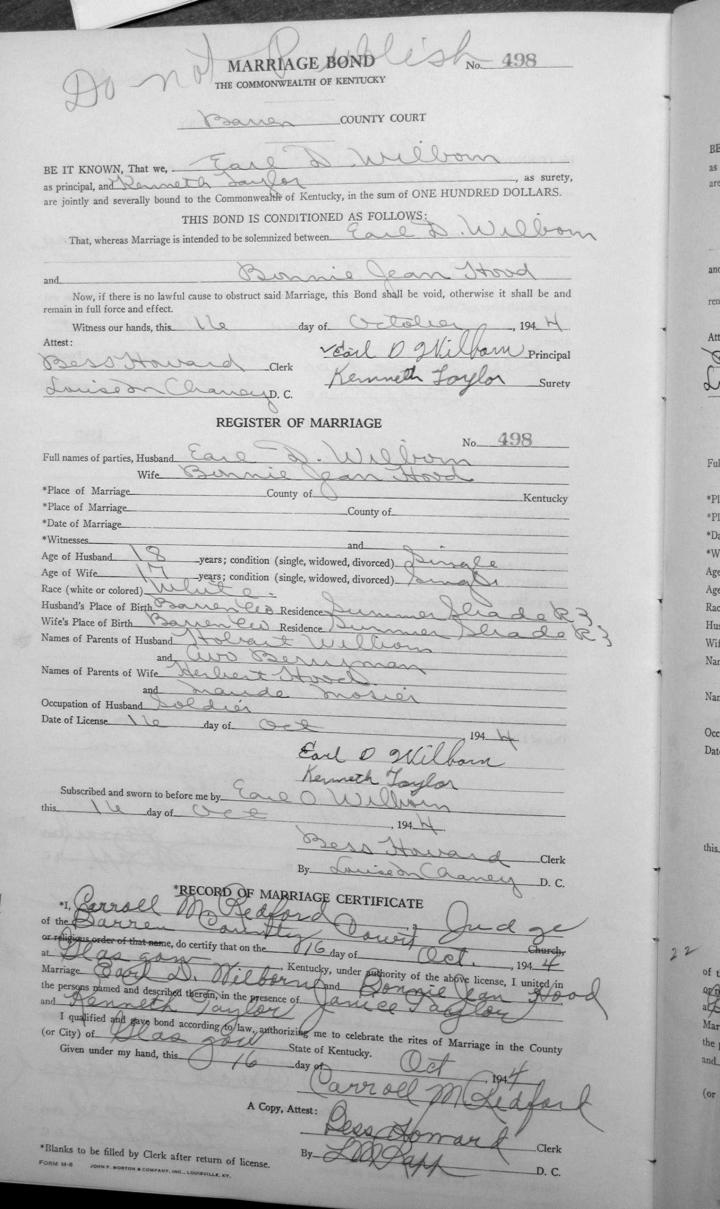 Do not Publish
MARRIAGE BOND No. 498
THE COMMONWEALTH OF KENTUCKY
Barren COUNTY COURT
BE IT KNOWN, That we, Earl D. Wilborn
as principal, and Kenneth Taylor, as surety,
are jointly and severally bound to the Commonwealth of Kentucky, in the sum of ONE HUNDRED DOLLARS.
THIS BOND IS CONDITIONED AS FOLLOWS:
That, whereas Marriage is intended to be solemnized between Earl D. Wilborn
and Bonnie Jean Hood
Now, if there is no lawful cause to obstruct said Marriage, this Bond shall be void, otherwise it shall be and
remain in full force and effect.
Witness our hands, this 16 day of October, 1944
Attest:
Earl D Wilborn Principal
Bess Howard Clerk
Kenneth Taylor Surety
Louise M Chaney D. C.
REGISTER OF MARRIAGE
No. 498
Full names of parties, Husband Earl D. Wilborn
Wife Bonnie Jean Hood
*Place of Marriage County of Kentucky
*Place of Marriage County of
*Date of Marriage
*Witnesses and
Age of Husband 18 years; condition (single, widowed, divorced) Single
Age of Wife 17 years; condition (single, widowed, divorced) Single
Race (white or colored) White
Husband's Place of Birth Barren Co Residence Summer Shade R 3
Wife's Place of Birth Barren Co Residence Summer Shade R 3
Names of Parents of Husband Hobart Wilborn
and Berryman
Names of Parents of Wife Herbert Hood
and Maude Mosier
Occupation of Husband Soldier
Date of License 16 day of Oct, 1944
Earl D Wilborn
Kenneth Taylor
Subscribed and sworn to before me by Earl D Wilborn
this 16 day of Oct, 1944
Bess Howard Clerk
By Louise M Chaney D. C.
*RECORD OF MARRIAGE CERTIFICATE
*I, Carroll M Redford, Judge
of the Barren County Court Church,
or religious order of that name, do certify that on the 16 day of Oct. 1944
at Glasgow, Kentucky, under authority of the above license, I united in
Marriage Earl D. Wilborn and Bonnie Jean Hood
the persons named and described therein, in the presence of Janice Taylor
and Kenneth Taylor
I qualified and gave bond according to law, authorizing me to celebrate the rites of Marriage in the County
(or City) of Glasgow State of Kentucky.
Given under my hand, this 16 day of Oct 1944
Carroll M Redford
A Copy, Attest: Bess Howard Clerk
By D. C.
*Blanks to be filled by Clerk after return of license.
FORM M-8 JOHN P. MORTON & COMPANY, INC., LOUISVILLE, KY.
22